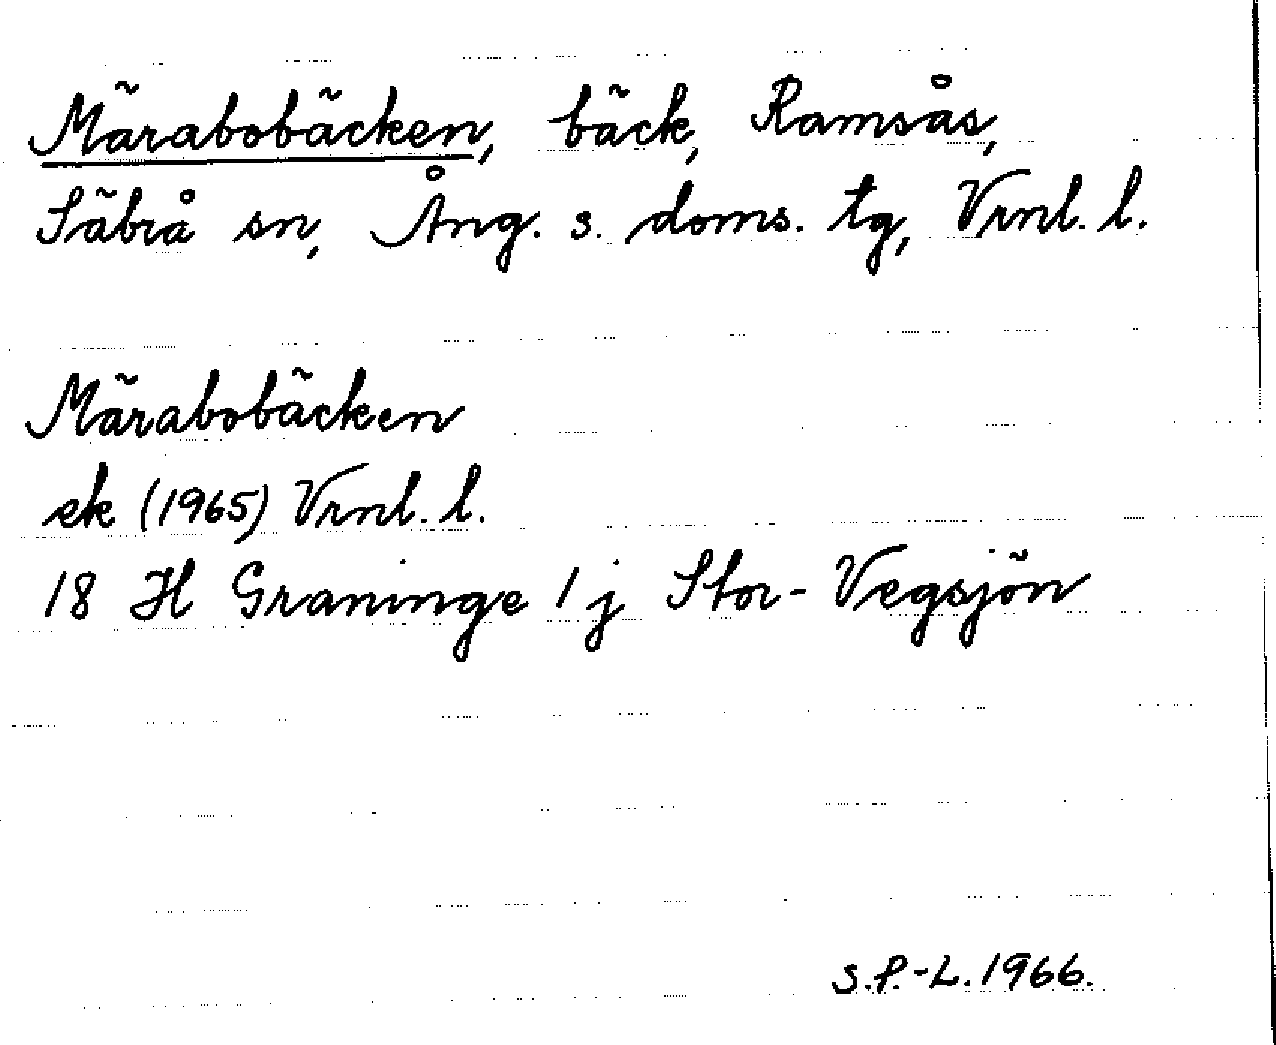 Märabobäcken, bäck, Ramsås,
Säbrå sn, Ång. s. doms. tg, Vrnl. l.
Märabobäcken
ek (1965) Vrnl. l.
18 H Graninge 1 j Stor-Vegsjön
S.P.-L. 1966.